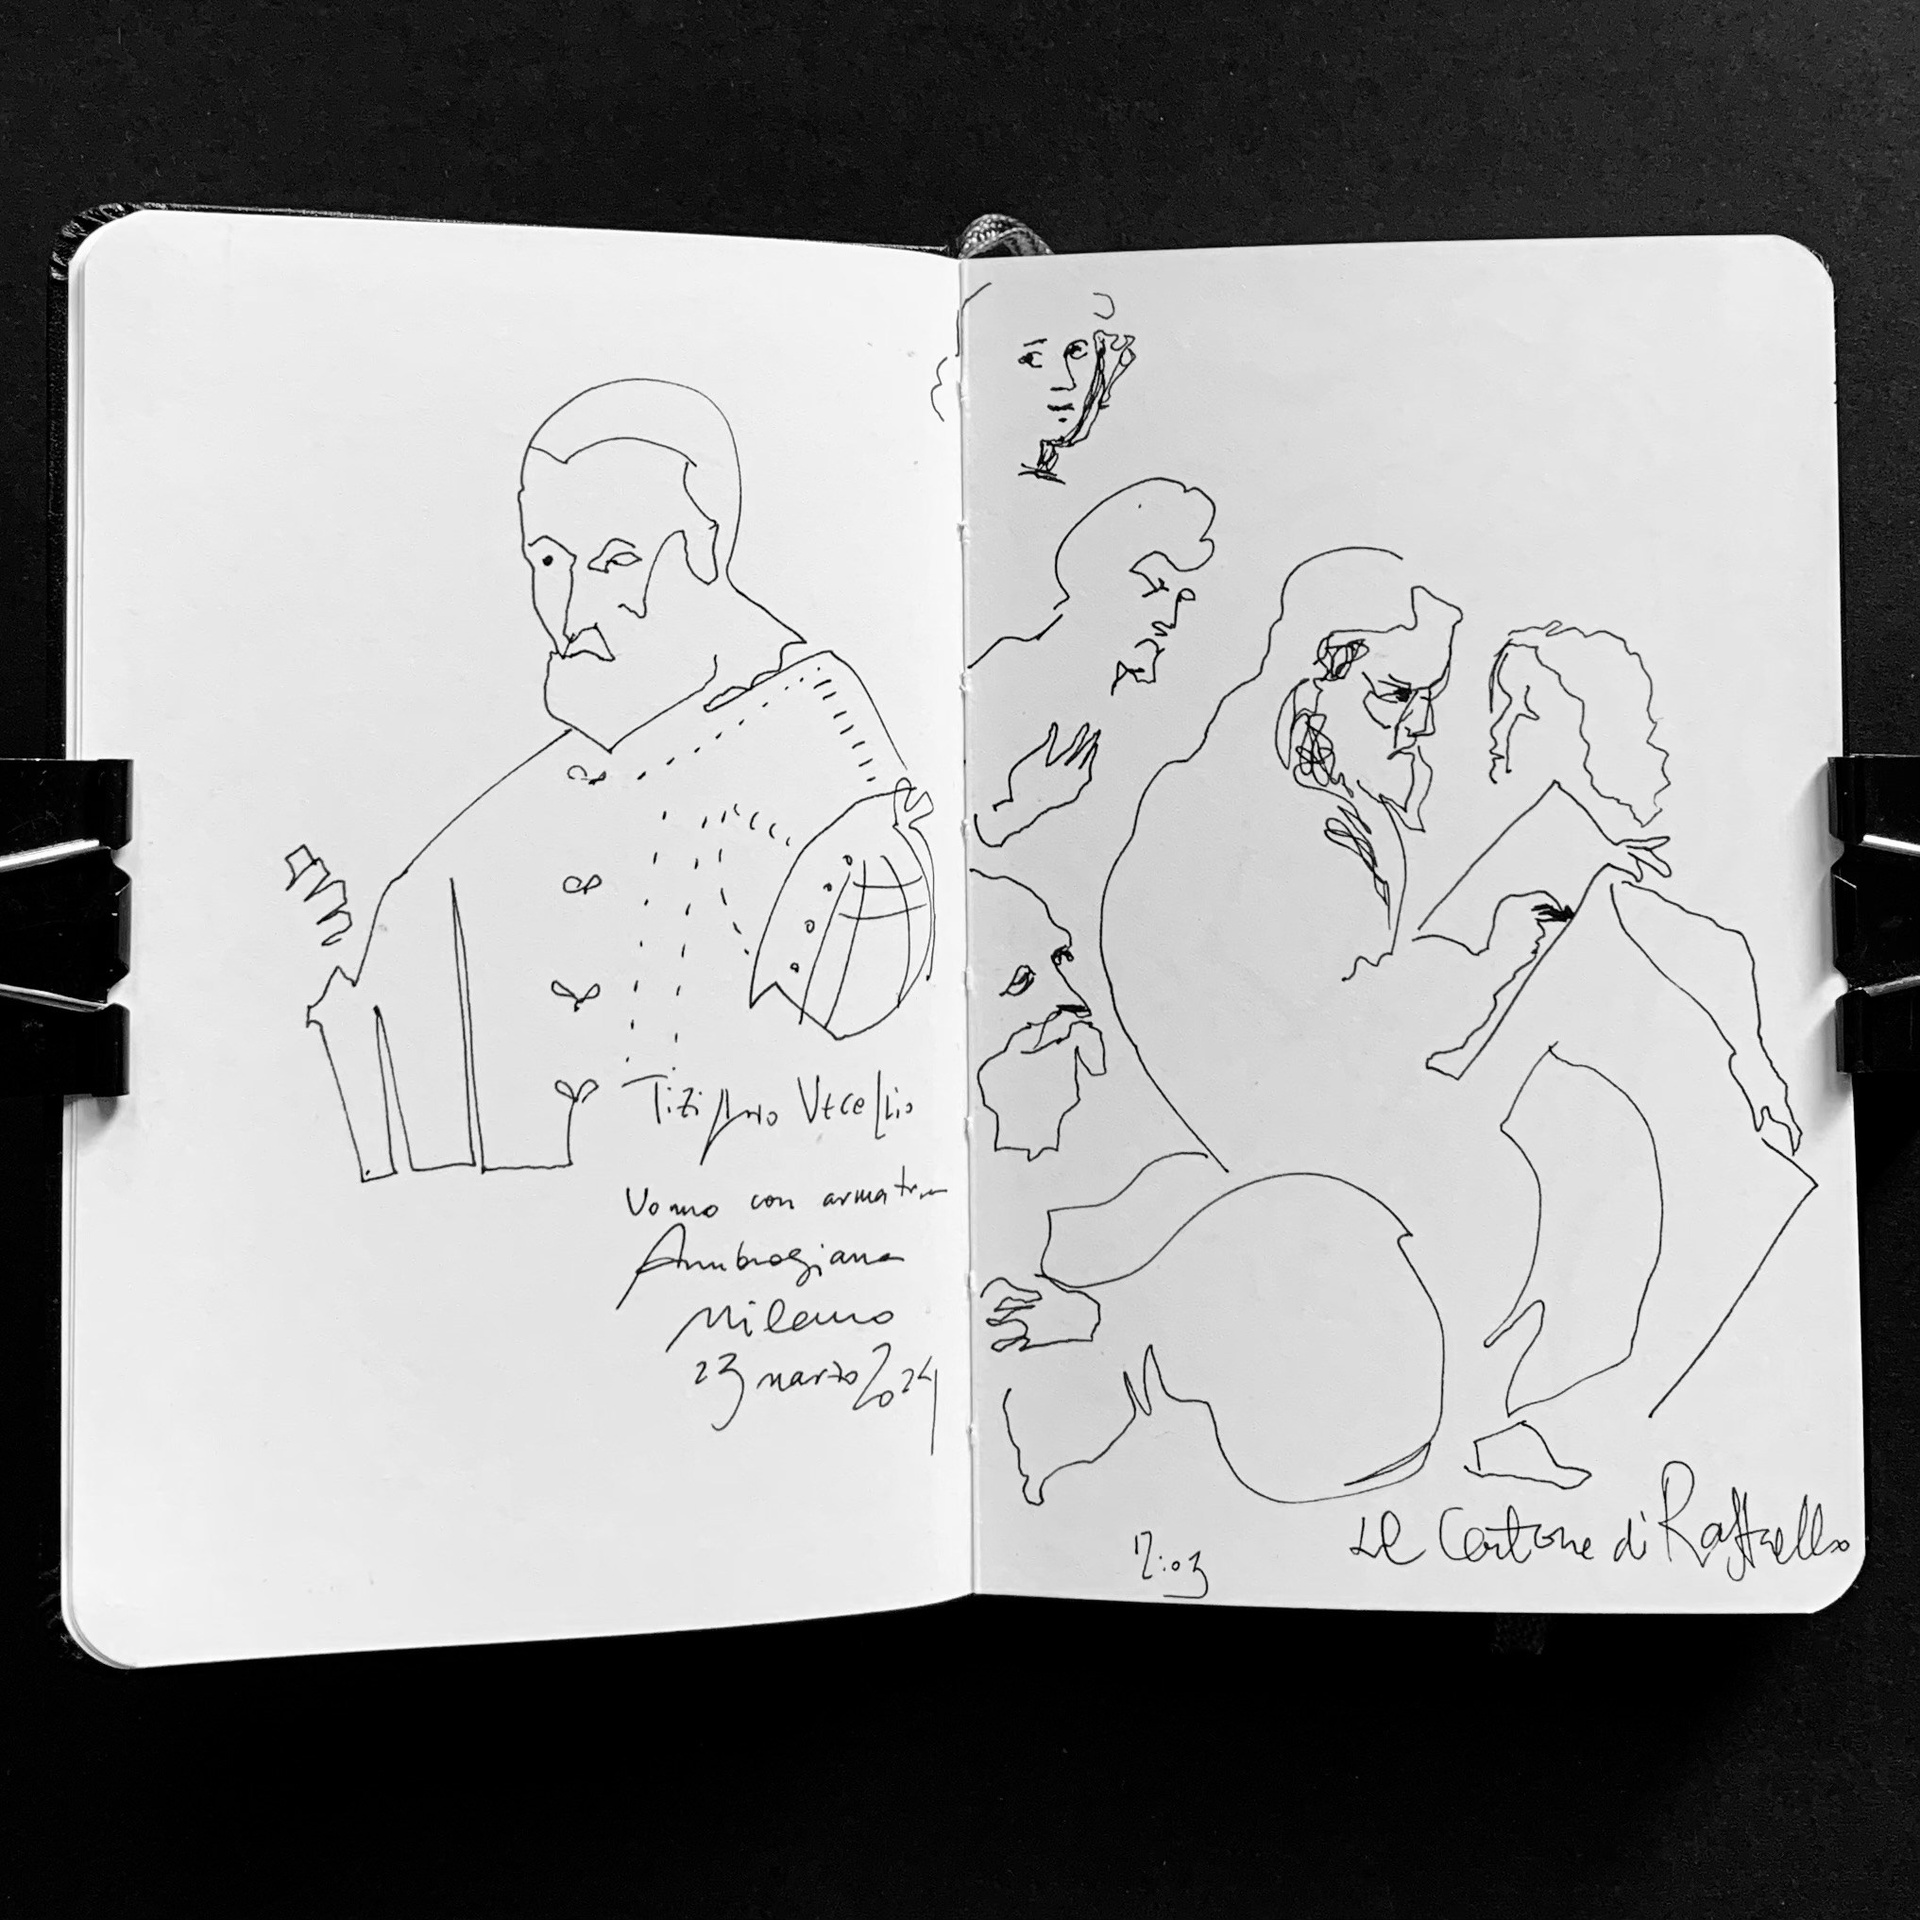 Tiziano Vecellio
Uomo con armatura
Ambrosiana
Milano
23 marzo 2024
Il Cartone di Raffaello
17:03